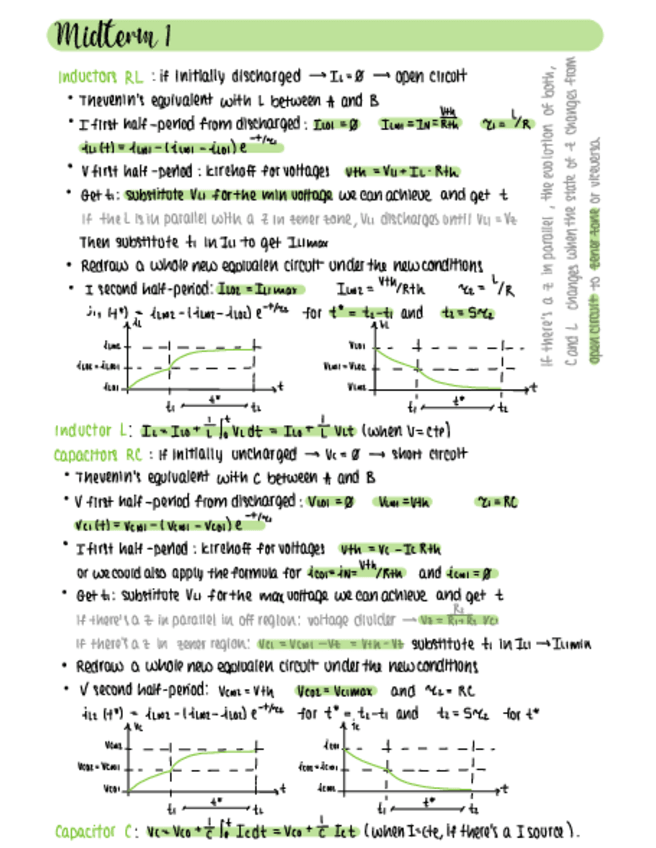 Midterm 1
Inductors RL : if initially discharged → IL = Ø → open circuit
• Thevenin's equivalent with L between A and B
• I first half-period from discharged : IL01 = Ø IL∞1 = IN = Vth/Rth τ1 = L/R
iL1(t) = iL∞1 - (iL∞1 - iL01) e^-t/τ1
• V first half-period : kirchoff for voltages Vth = VL1 + IL · Rth
• Get t1: substitute VL1 for the min voltage we can achieve and get t
If the L is in parallel with a z in zener zone, VL1 discharges until VL1 = Vz
Then substitute t1 in IL1 to get IL1max
• Redraw a whole new equivalen circuit under the new conditions
• I second half-period: IL02 = IL1max IL∞2 = Vth/Rth τ2 = L/R
iL2 (t*) = iL∞2 - (iL∞2 - iL02) e^-t/τ2 for t* = t2-t1 and t2 = 5τ2
iL
iL∞2
iL02 = iL∞1
iL01
t
t1
t*
t2
VL
VL01
VL∞1 = VL02
VL∞2
t
t1
t*
t2
If there's a z in parallel, the evolution of both,
C and L changes when the state of z changes from
open circuit to zener zone or viceversa.
Inductor L: IL = IL0 + 1/L ∫0t VL dt = IL0 + 1/L VLt (when V = cte)
Capacitors RC : if initially uncharged → Vc = Ø → short circuit
• Thevenin's equivalent with C between A and B
• V first half-period from discharged : Vc01 = Ø Vc∞1 = Vth τ1 = RC
Vc1(t) = Vc∞1 - (Vc∞1 - Vc01) e^-t/τ1
• I first half-period : kirchoff for voltages Vth = Vc - Ic Rth
or we could also apply the formula for ic01 = iN = Vth/Rth and ic∞1 = Ø
• Get t1: substitute VL1 for the max voltage we can achieve and get t
If there's a z in parallel in off region: voltage divider → Vz = R2/R1+R2 Vc1
If there's a z in zener region: Vc1 = Vc∞1 - Vz = Vth - Vz substitute t1 in IL1 → IL1min
• Redraw a whole new equivalen circuit under the new conditions
• V second half-period: Vc∞2 = Vth Vc02 = Vc1max and τ2 = RC
iL2 (t*) = iL∞2 - (iL∞2 - iL02) e^-t/τ2 for t* = t2-t1 and t2 = 5τ2 for t*
Vc
Vc∞2
Vc02 = Vc∞1
Vc01
t
t1
t*
t2
ic
ic01
ic02 = ic∞1
ic∞2
t
t1
t*
t2
Capacitor C: Vc = Vc0 + 1/C ∫0t Ic dt = Vc0 + 1/C Ic t (when I = cte, if there's a I source).